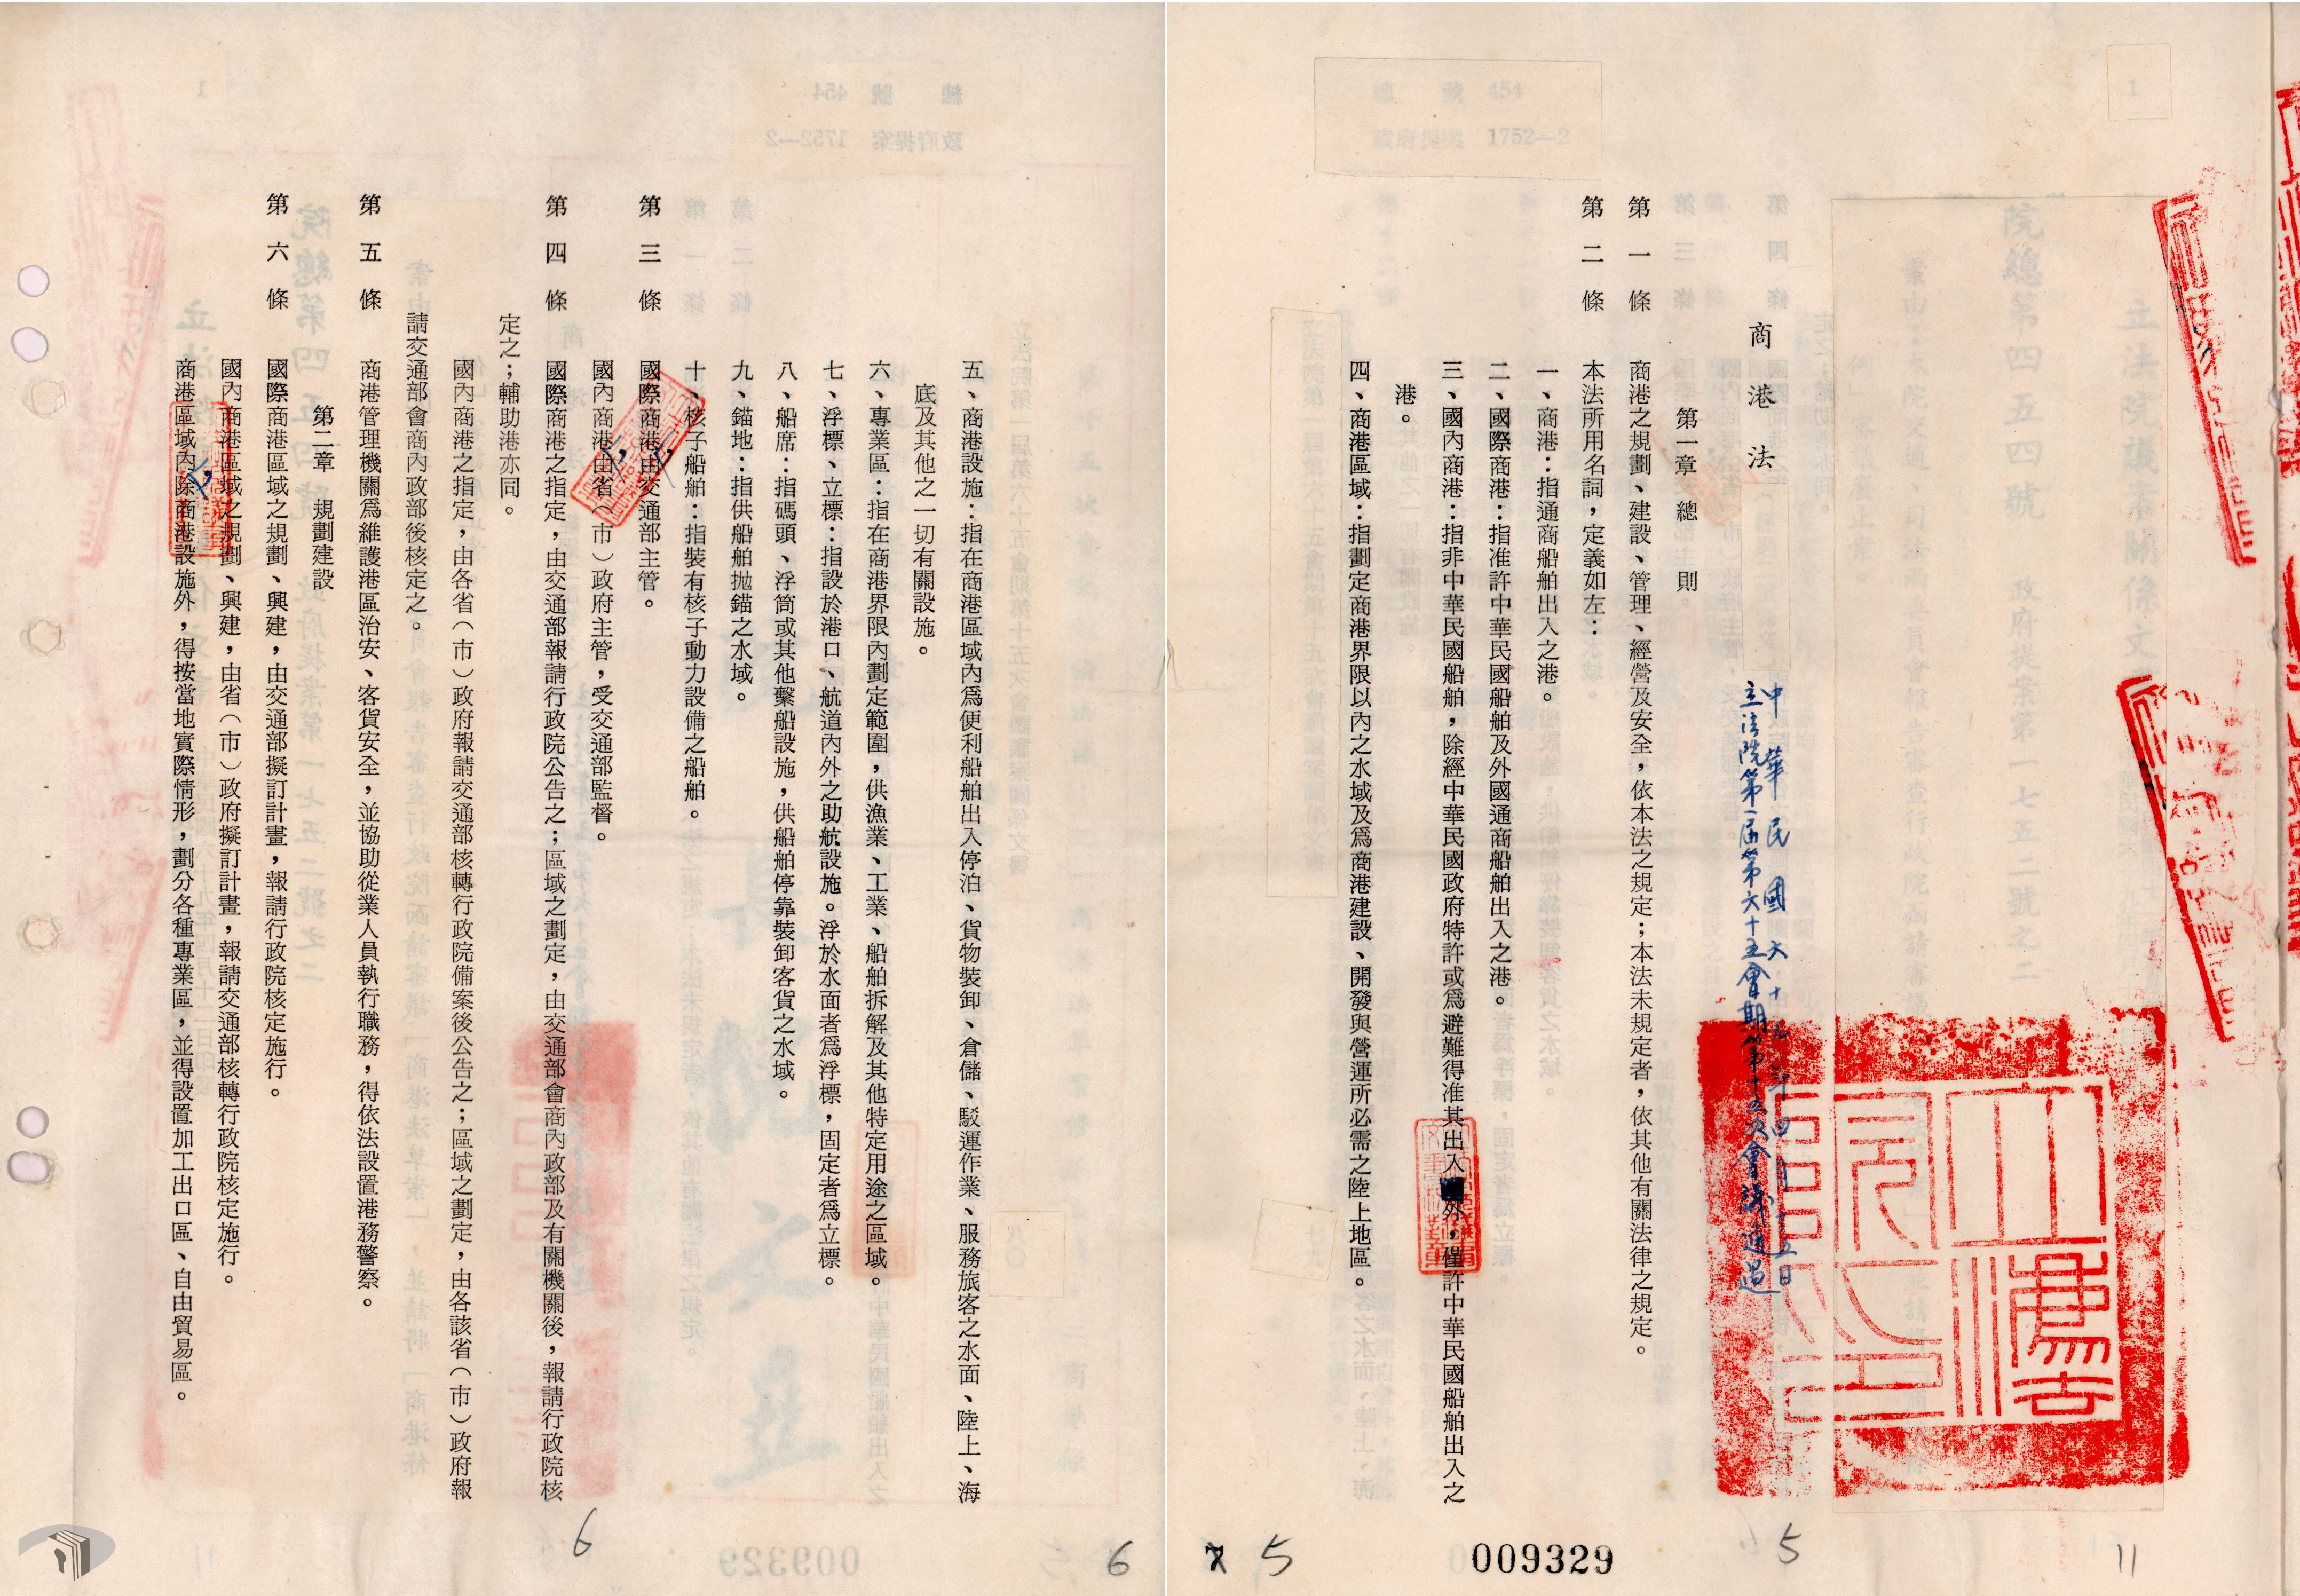 商港法
中華民國六十九年四月十五日
立法院第一屆第六十五會期第十五次會議通過
第一章 總則
第一條 商港之規劃、建設、管理、經營及安全，依本法之規定；本法未規定者，依其他有關法律之規定。
第二條 本法所用名詞，定義如左：
一、商港：指通商船舶出入之港。
二、國際商港：指准許中華民國船舶及外國通商船舶出入之港。
三、國內商港：指非中華民國船舶，除經中華民國政府特許或爲避難得准其出入外，僅許中華民國船舶出入之
港。
四、商港區域：指劃定商港界限以內之水域及爲商港建設、開發與營運所必需之陸上地區。
009329
5
5
11
五、商港設施：指在商港區域內爲便利船舶出入停泊、貨物裝卸、倉儲、駁運作業、服務旅客之水面、陸上、海
底及其他之一切有關設施。
六、專業區：指在商港界限內劃定範圍，供漁業、工業、船舶拆解及其他特定用途之區域。
七、浮標、立標：指設於港口、航道內外之助航設施。浮於水面者爲浮標，固定者爲立標。
八、船席：指碼頭、浮筒或其他繫船設施，供船舶停靠裝卸客貨之水域。
九、錨地：指供船舶拋錨之水域。
十、核子船舶：指裝有核子動力設備之船舶。
第三條 國際商港由交通部主管。
國內商港由省（市）政府主管，受交通部監督。
第四條 國際商港之指定，由交通部報請行政院公告之；區域之劃定，由交通部會商內政部及有關機關後，報請行政院核
定之；輔助港亦同。
國內商港之指定，由各省（市）政府報請交通部核轉行政院備案後公告之；區域之劃定，由各該省（市）政府報
請交通部會商內政部後核定之。
第五條 商港管理機關爲維護港區治安、客貨安全，並協助從業人員執行職務，得依法設置港務警察。
第二章 規劃建設
第六條 國際商港區域之規劃、興建，由交通部擬訂計畫，報請行政院核定施行。
國內商港區域之規劃、興建，由省（市）政府擬訂計畫，報請交通部核轉行政院核定施行。
商港區域內除商港設施外，得按當地實際情形，劃分各種專業區，並得設置加工出口區、自由貿易區。
6
6